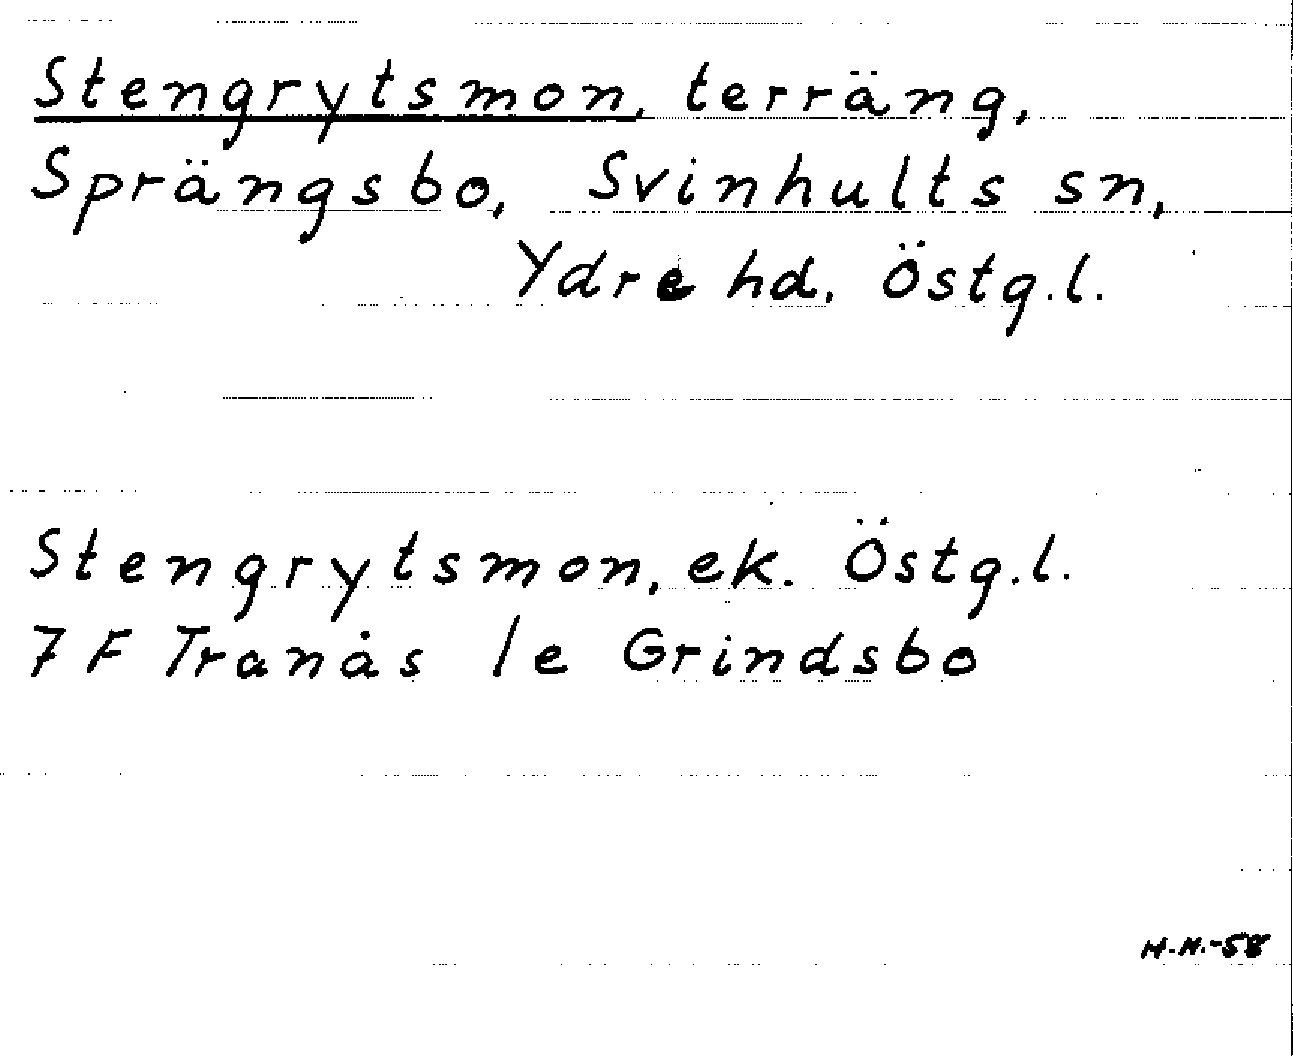 Stengrytsmon, terräng,
Sprängsbo, Svinhults sn,
Ydre hd. Östg.l.
Stengrytsmon, ek. Östg.l.
7 F Tranås 1e Grindsbo
H.H.-58